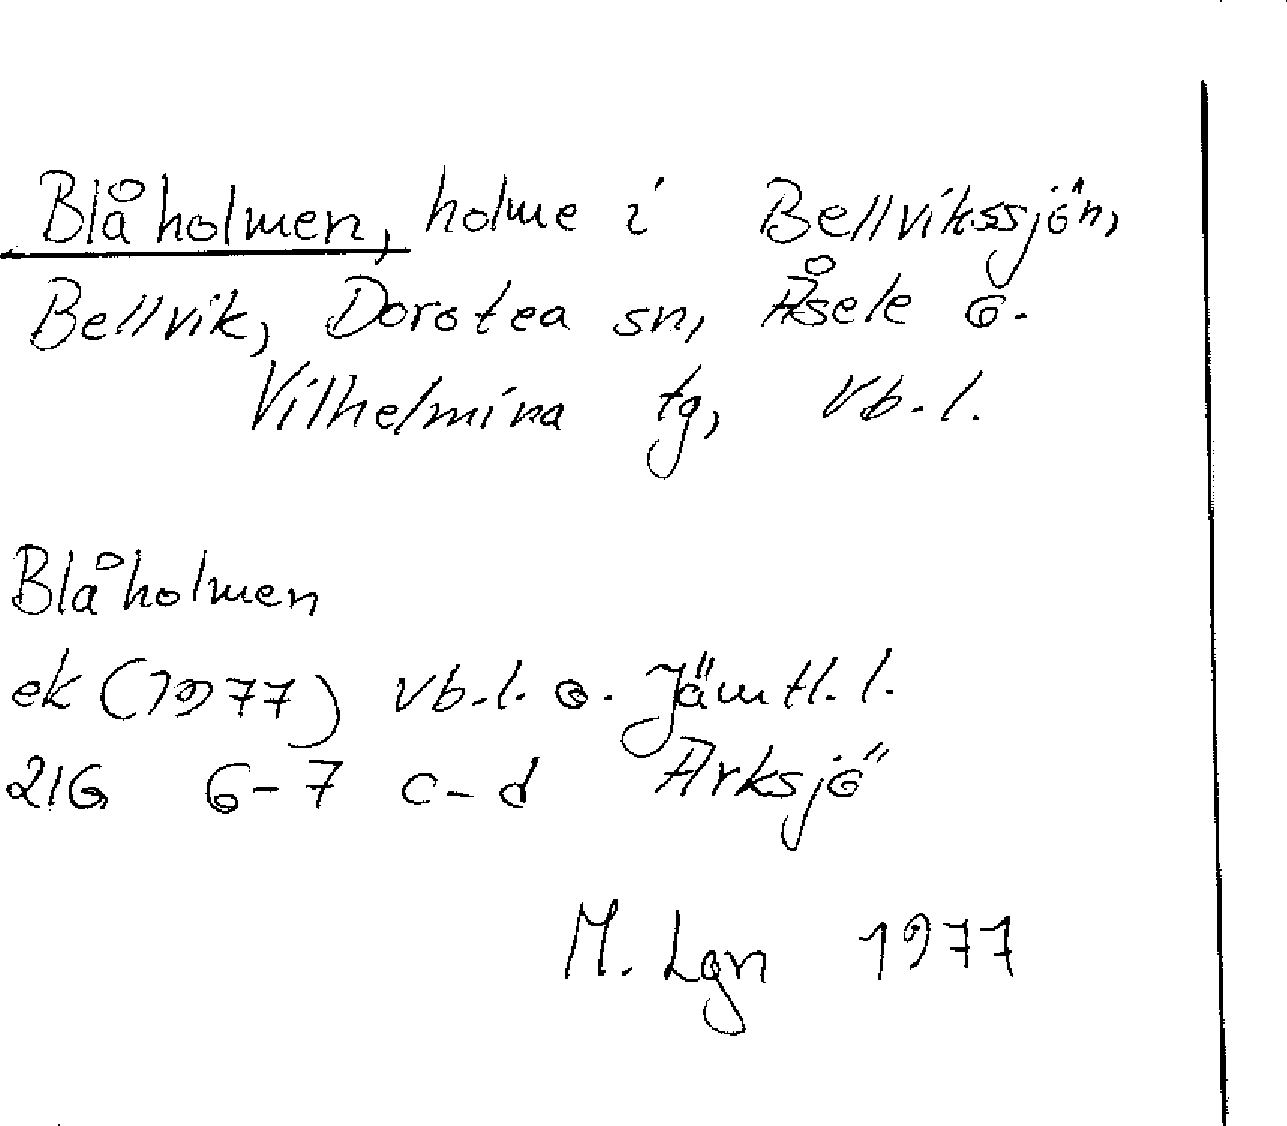 Blåholmen, holme i Bellvikssjön,
Bellvik, Dorotea sn, Åsele o.
Vilhelmina tg, Vb.l.
Blåholmen
ek (1977) Vb.l. o. Jämtl.l.
21G 6-7 c-d Arksjö
M. Lgn 1977